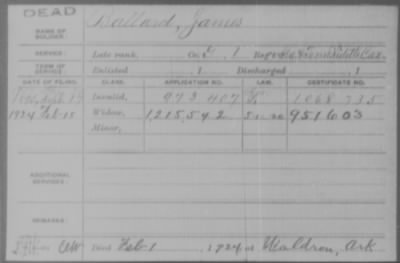 DEAD
NAME OF SOLDIER: Ballard, James
SERVICE: Late rank, Co. G, 1 Reg't Cav.
TERM OF SERVICE: Enlisted , 1 Discharged , 1
DATE OF FILING. CLASS. APPLICATION NO. LAW. CERTIFICATE NO.
Invalid, 973 407 1068 735
1924 Feb-15 Widow, 1215542 951603
Minor,
ADDITIONAL SERVICES:
REMARKS:
Died Feb 1, 1924 at Waldron, Ark